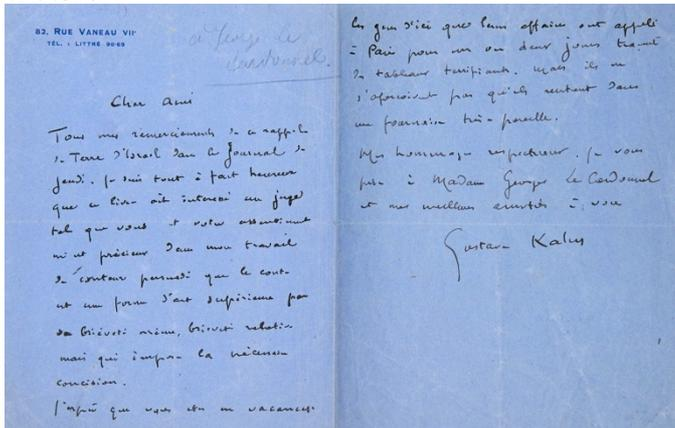 82, RUE VANEAU VIIᵉ
TÉL. : LITTRÉ 90-69
à George le
Cardonnel.
Cher ami
Tous mes remerciements de ce rappel
de Terre d'Israël dans le Journal de
jeudi. Je suis tout à fait heureux
que ce livre ait intéressé un juge
tel que vous et votre assentiment
m'est précieux dans mon travail
de conteur persuadé que le conte
est une forme d'art supérieure par
sa brièveté même, brièveté relative
mais qui impose la nécessaire
concision.
J'espère que vous êtes en vacances.
les gens d'ici que leurs affaires ont appelé
à Paris pour un ou deux jours
des tableaux terrifiants. mais ils ne
s'aperçoivent pas qu'ils rentrent dans
une fournaise très pareille.
Mes hommages respectueux, je vous
prie à Madame Georges Le Cardonnel
et mes meilleures amitiés à vous
Gustave Kahn